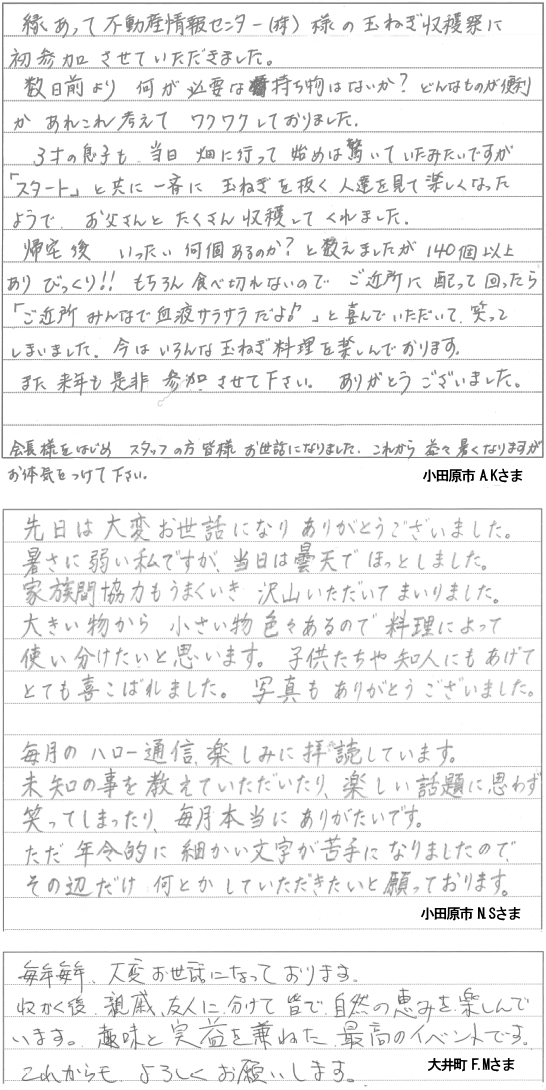 縁あって不動産情報センター(株)様の玉ねぎ収穫祭に
初参加させていただきました。
数日前より 何が必要な持ち物はないか? どんなものが便利
か あれこれ考えて ワクワクしておりました。
3才の息子も、当日 畑に行って 始めは驚いていたみたいですが
「スタート」と共に一斉に 玉ねぎを抜く人達を見て楽しくなった
ようで、お父さんとたくさん収穫してくれました。
帰宅後 いったい何個あるのか?と数えましたが 140個以上
あり びっくり!! もちろん食べ切れないので ご近所に配って回ったら
「ご近所みんなで血液サラサラだよ♪」と喜んでいただいて、笑って
しまいました。今はいろんな玉ねぎ料理を楽しんでおります。
また来年も是非 参加させて下さい。 ありがとうございました。
会長様をはじめ スタッフの方皆様 お世話になりました。これから益々暑くなりますが
お体気をつけて下さい。
小田原市 A.Kさま
先日は大変お世話になり ありがとうございました。
暑さに弱い私ですが、当日は曇天でほっとしました。
家族間協力もうまくいき 沢山いただいてまいりました。
大きい物から 小さい物色々あるので 料理によって
使い分けたいと思います。 子供たちや知人にもあげて
とても喜こばれました。 写真もありがとうございました。
毎月のハロー通信、楽しみに拝読しています。
未知の事を教えていただいたり、楽しい話題に思わず
笑ってしまったり、毎月本当にありがたいです。
ただ 年令的に 細かい文字が苦手になりましたので、
その辺だけ 何とかしていただきたいと願っております。
小田原市 N.Sさま
毎年毎年、大変お世話になっております。
収かく後、親戚、友人に分けて皆で自然の恵みを楽しんで
います。趣味と実益を兼ねた 最高のイベントです。
これからも よろしくお願いします。
大井町 F.Mさま